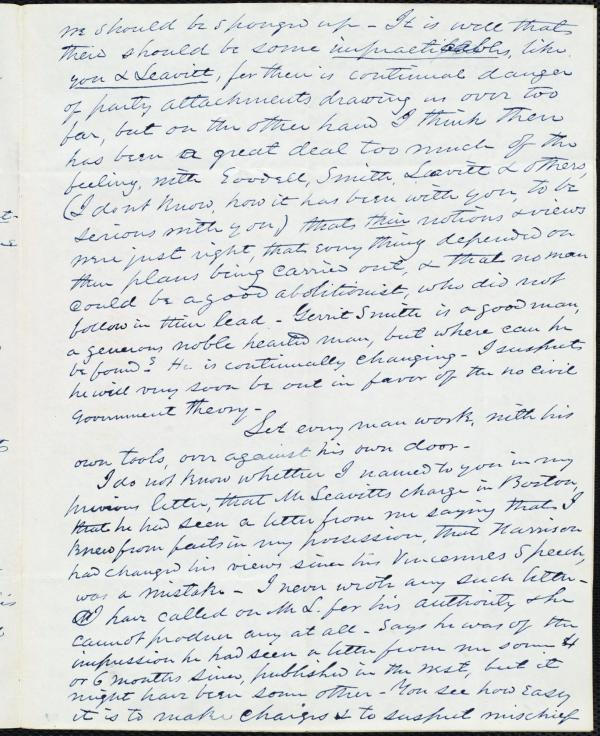 me should be sponged up - It is well that
there should be some impracticables, like
you & Leavitt, for there is continual danger
of party attachments drawing us over too
far, but on the other hand I think there
has been a great deal too much of the
feeling, with Goodell, Smith, Leavitt & others,
(I dont know, how it has been with you, to be
serious with you,) that their notions & views
were just right, that every thing depended on
their plans being carried out, & that no man
could be a good abolitionist, who did not
follow in their lead - Gerrit Smith is a good man,
a generous noble hearted man, but where can he
be found? He is continually changing - I suspect
he will very soon be out in favor of the no civil
Government theory -
Let every man work, with his
own tools, over against his own door -
I do not know whether I named to you in my
previous letter, that Mr Leavitts charge in Boston,
that he had seen a letter from me saying that I
knew from facts in my possession, that Harrison
had changed his views since his Vincennes Speech,
was a mistake - I never wrote any such letter -
I have called on Mr L. for his authority & he
cannot produce any at all - Says he was of the
impression he had seen a letter from me some 4
or 6 months since, published in the west, but it
might have been some other - You see how easy
it is to make charges & to suspect mischief